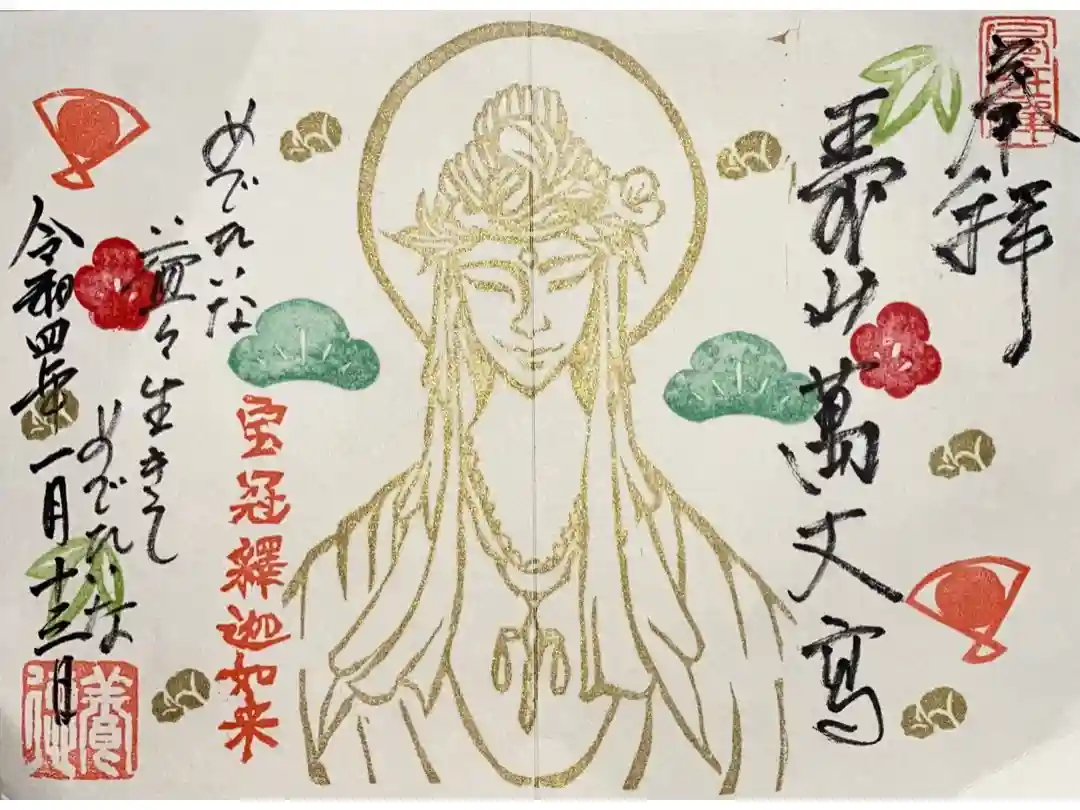 奉拝
壽山萬丈高
宝冠釋迦如来
めでたいな
益々生きて
めでたいな
令和四年一月十三日